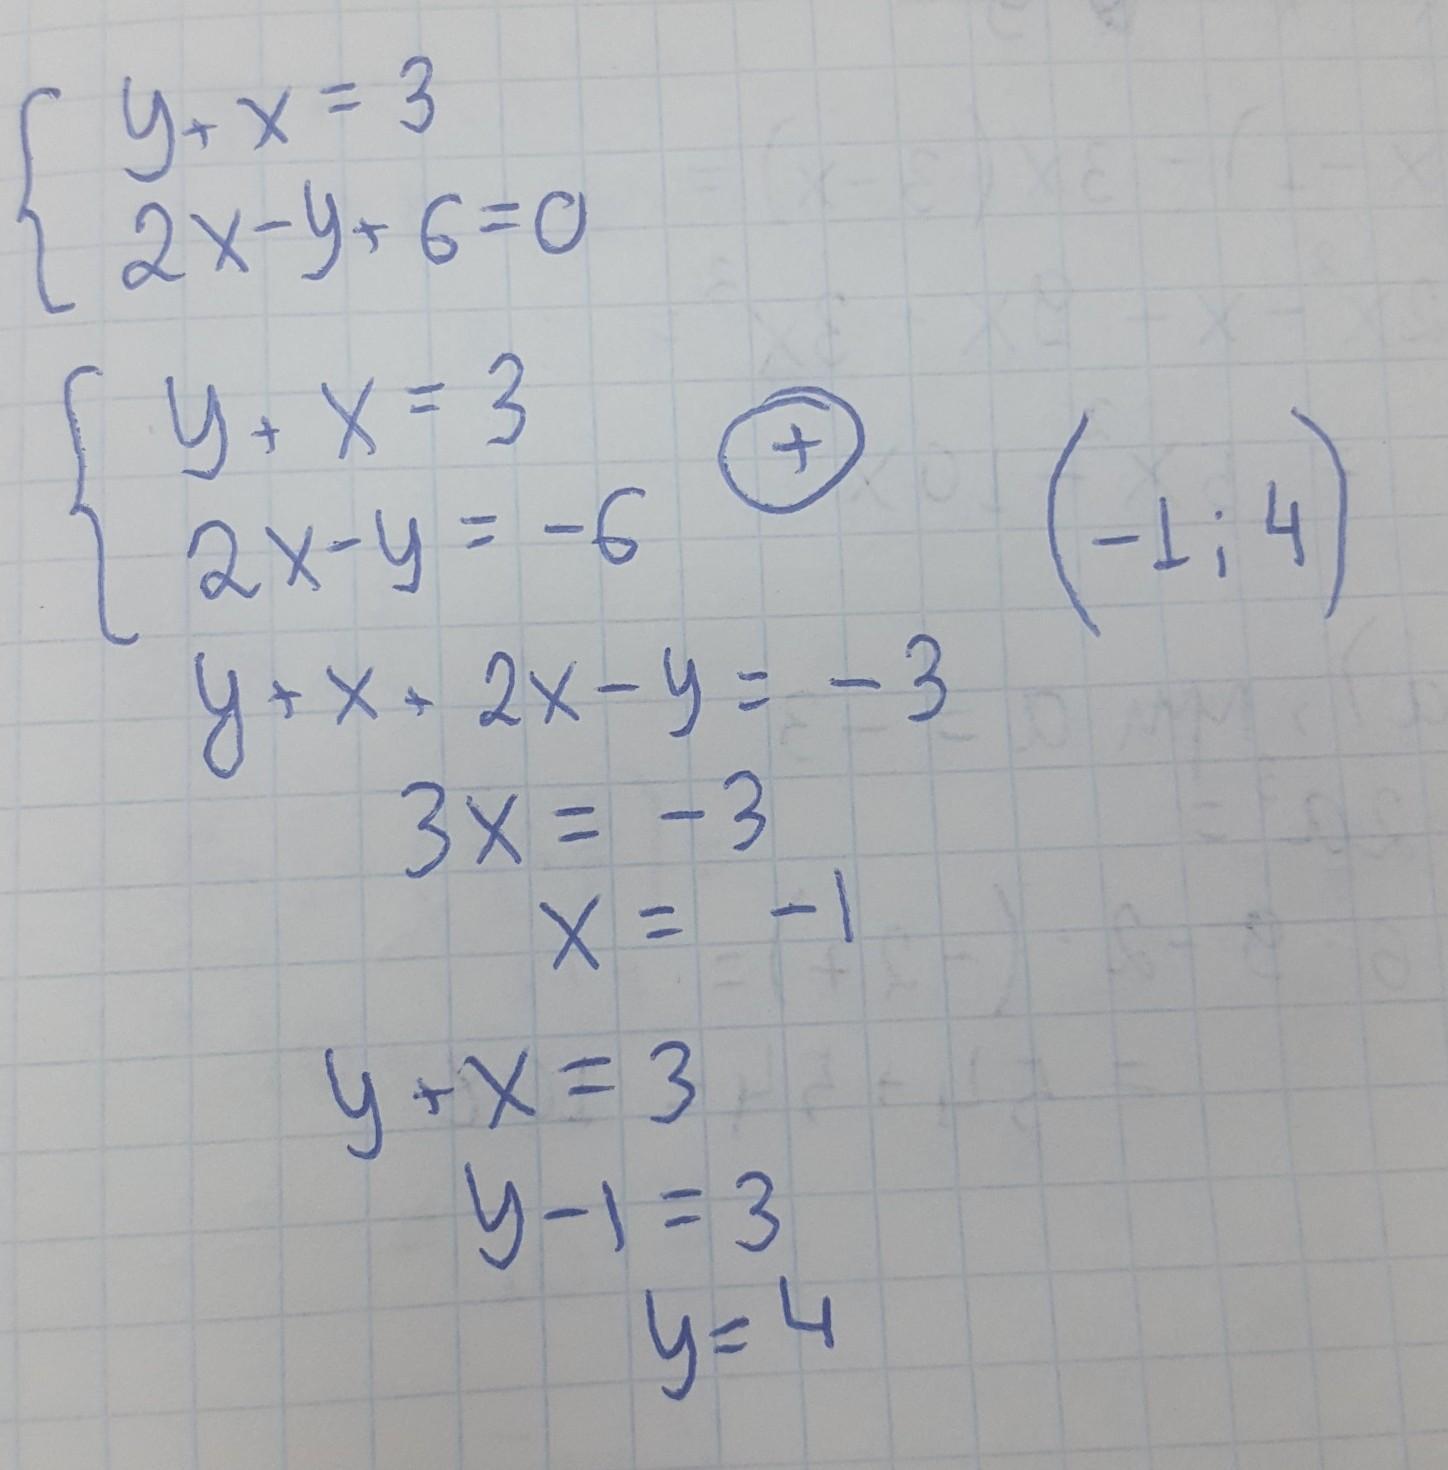 y + x = 3
2x - y + 6 = 0
y + x = 3
+
2x - y = -6
(-1; 4)
y + x + 2x - y = -3
3x = -3
x = -1
y + x = 3
y - 1 = 3
y = 4